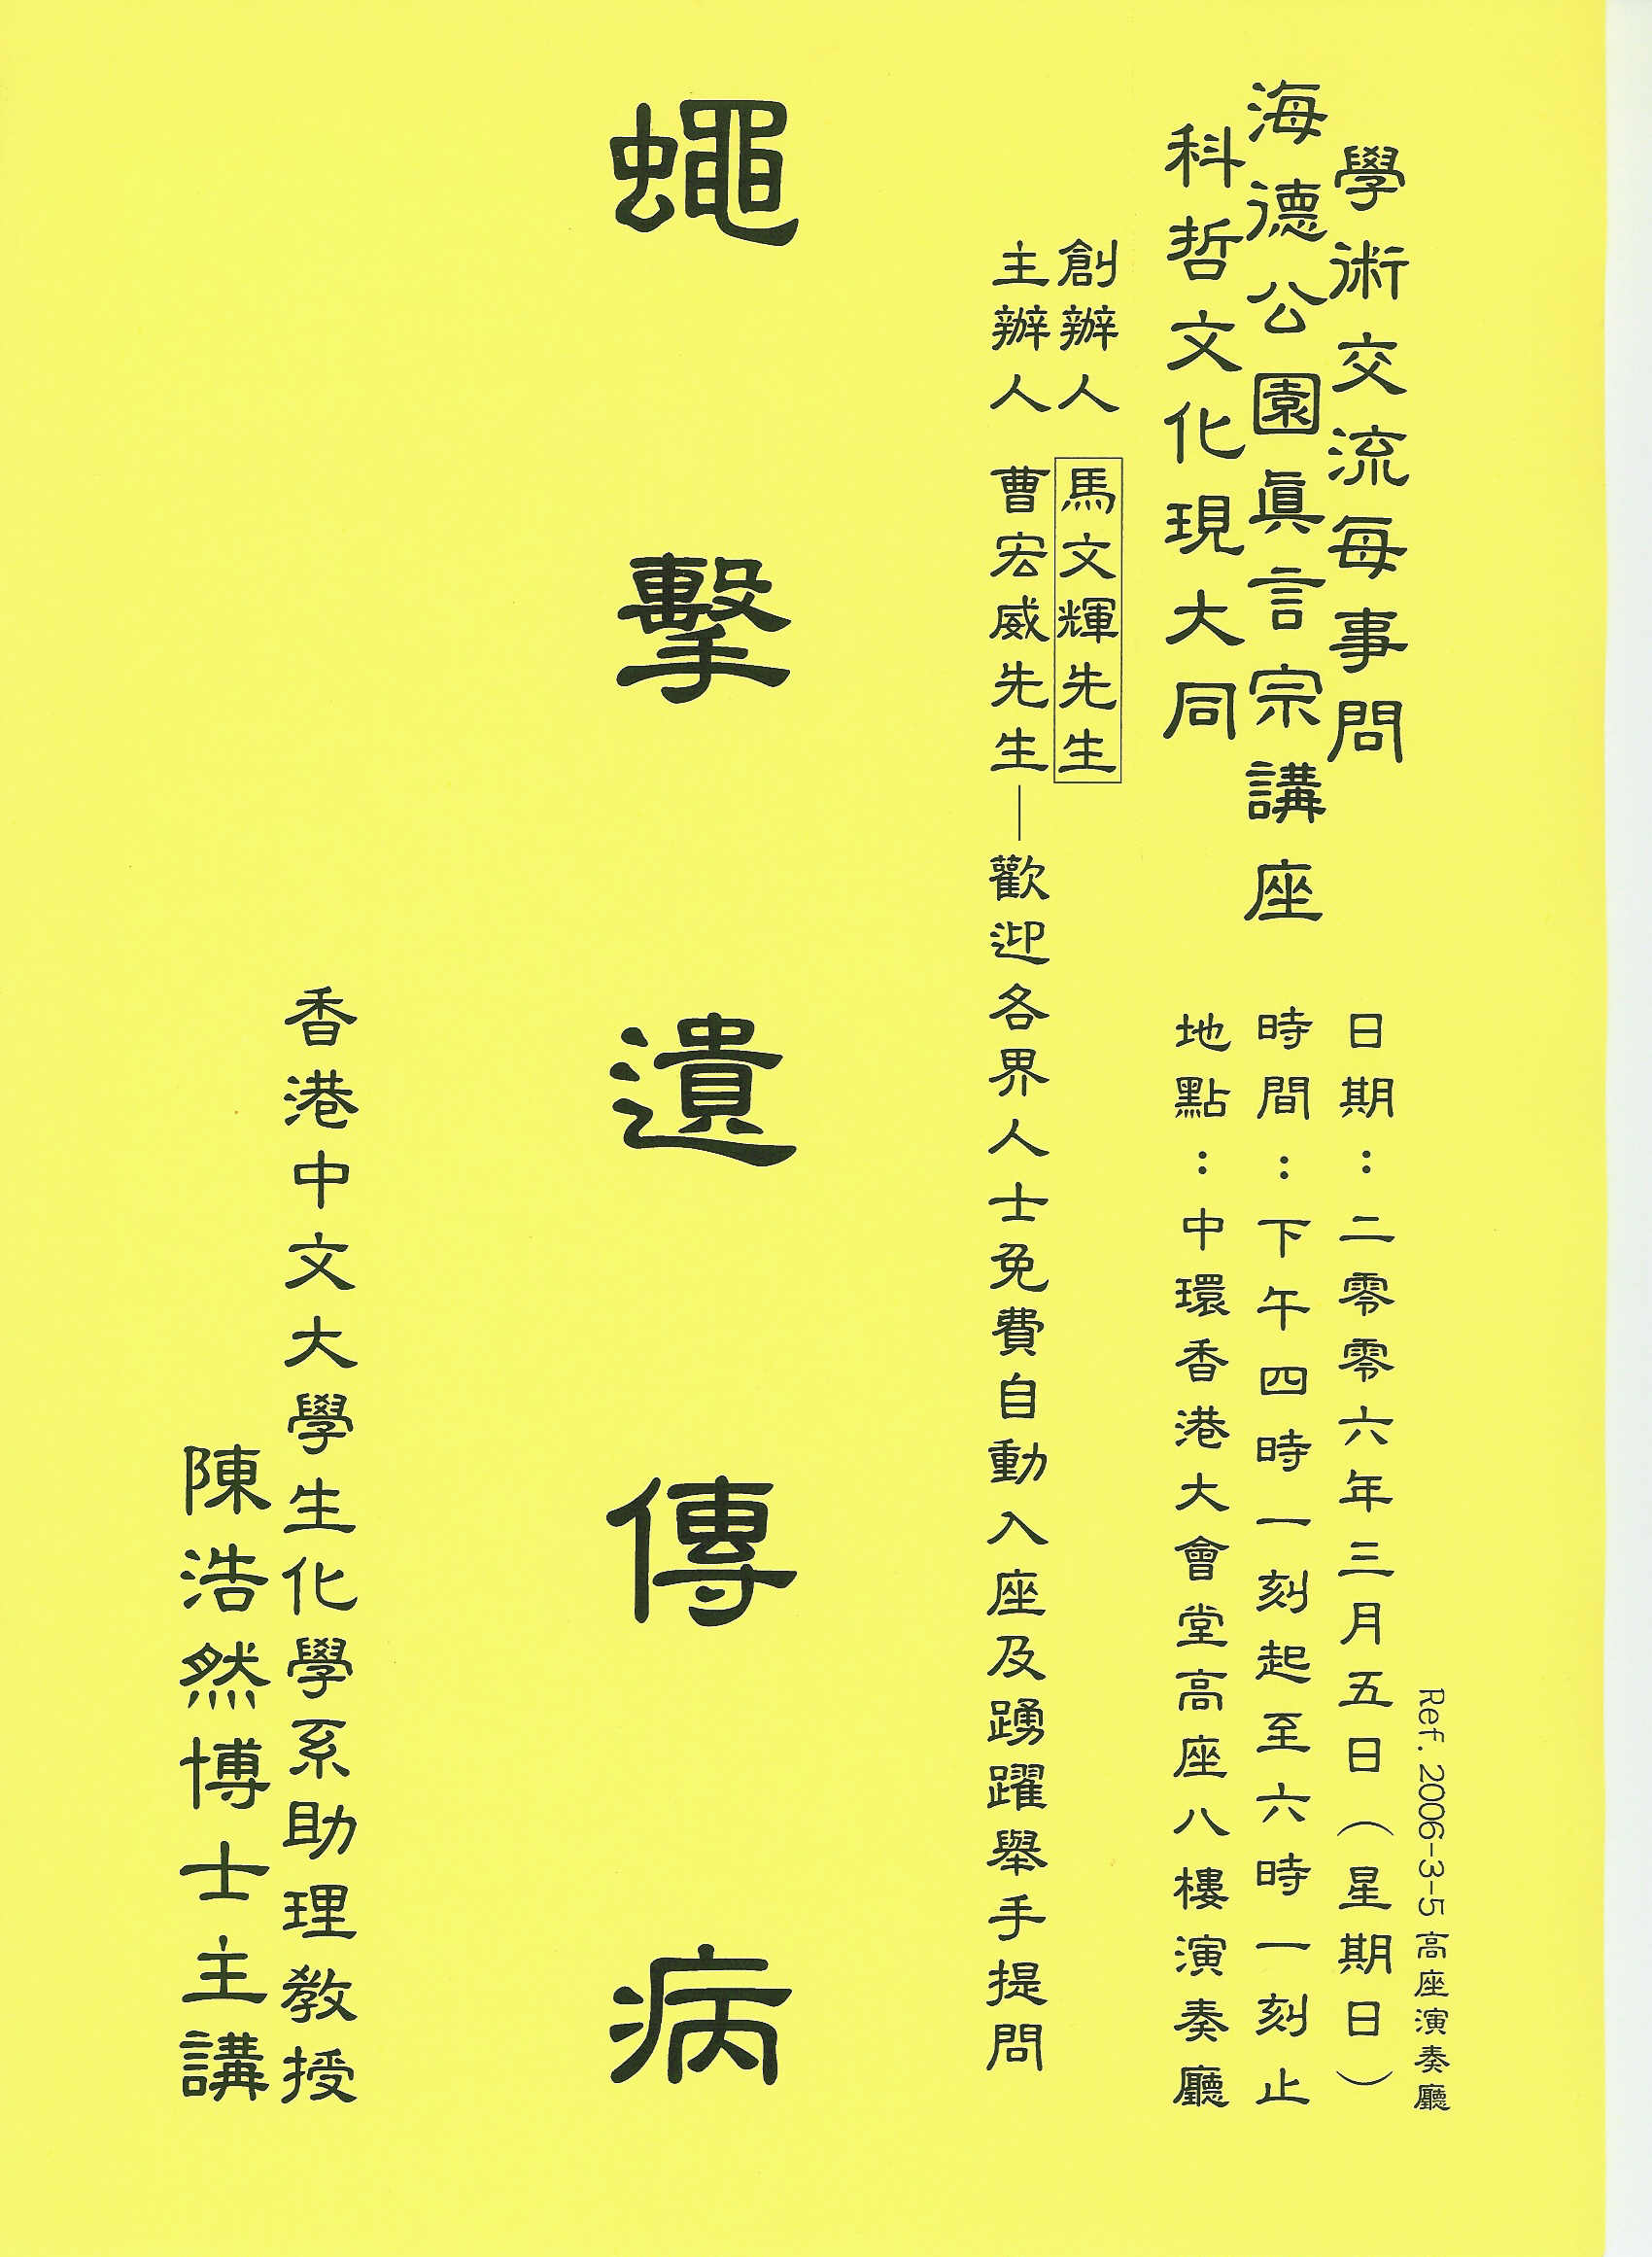 Ref. 2006-3-5 高座演奏廳
學術交流每事問
海德公園眞言宗講座
科哲文化現大同
日期：二零零六年三月五日（星期日）
時間：下午四時一刻起至六時一刻止
地點：中環香港大會堂高座八樓演奏廳
創辦人 馬文輝先生
主辦人 曹宏威先生—歡迎各界人士免費自動入座及踴躍舉手提問
蠅擊遺傳病
香港中文大學生化學系助理教授
陳浩然博士主講